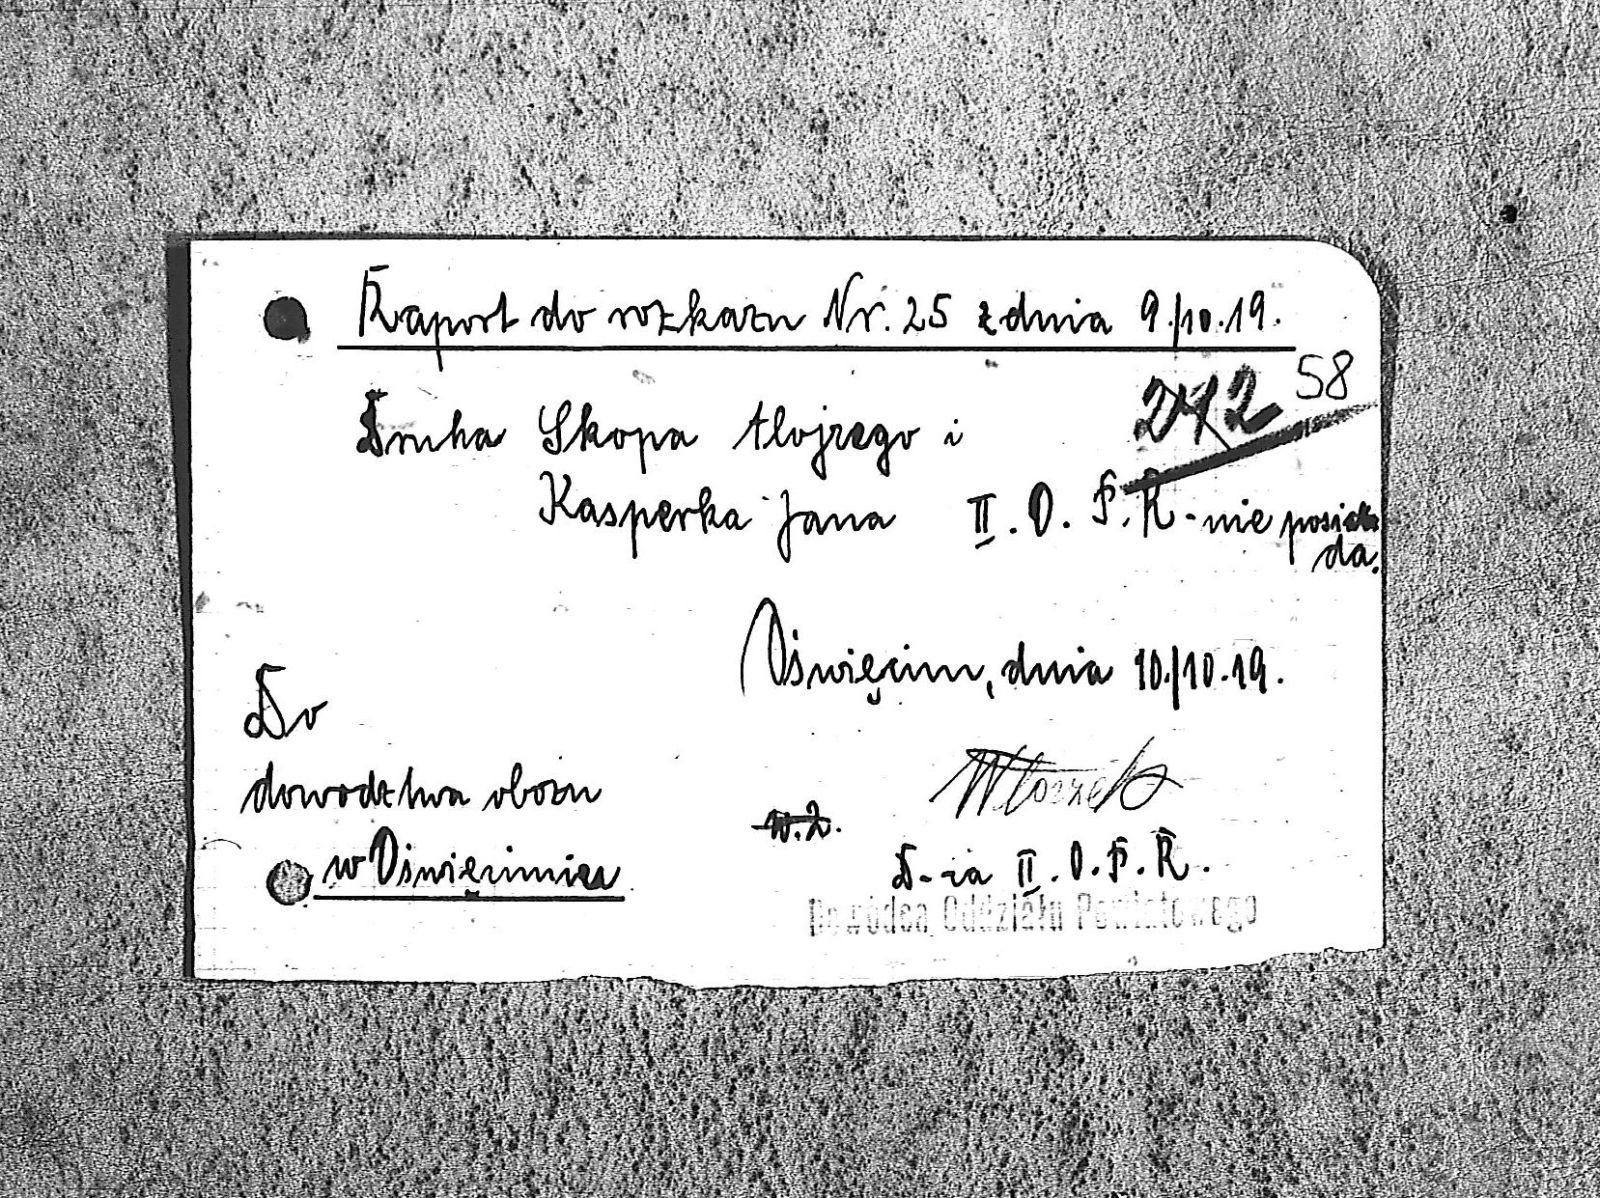 Raport do rozkazu Nr. 25 z dnia 9./10.19.
58
Druha Skopa Alojzego i
Kasperka Jana II. O. P. R. - nie posia
da.
Oświęcim, dnia 10./10.19.
Do
dowodztwa obozu
w Oświęcimiu
D-ca II. O. P. R.
Dowódca Oddziału Powiatowego